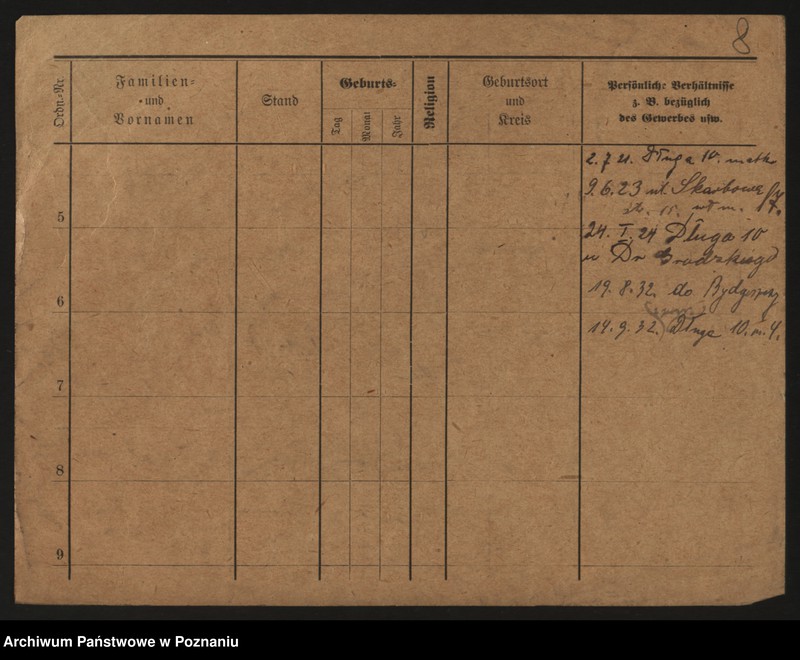 8
Ordn.-Nr.
Familien-
und
Vornamen
Stand
Geburts-
Tag
Monat
Jahr
Religion
Geburtsort
und
Kreis
Persönliche Verhältnisse
z. B. bezüglich
des Gewerbes usw.
2.7.21. Długa 10. matka
9.6.23 ul. Skarbowa
24. I. 24 Długa 10
u Dr Grodzkiego
19.8.32. do Bydgoszczy
14.9.32. Długa 10. m. 4.
5
6
7
8
9
Archiwum Państwowe w Poznaniu